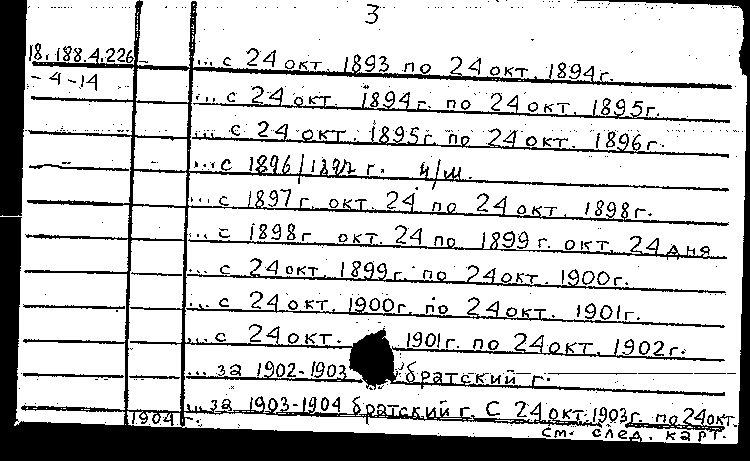 3
18.188.4.226 ... с 24 окт. 1893 по 24 окт. 1894г.
-4-14
... с 24 окт. 1894г. по 24 окт. 1895г.
... с 24 окт. 1895г. по 24 окт. 1896г.
... с 1896/1897 г. ч/ш.
... с 1897г. окт. 24 по 24 окт. 1898г.
... с 1898г окт. 24 по 1899г. окт. 24 дня
... с 24 окт. 1899г. по 24 окт. 1900г.
... с 24 окт. 1900г. по 24 окт. 1901г.
... с 24 окт. 1901г. по 24 окт. 1902г.
... за 1902-1903 братский г.
... за 1903-1904 братский г. С 24 окт. 1903г. по 24 окт.
1904 г. см. след. карт.